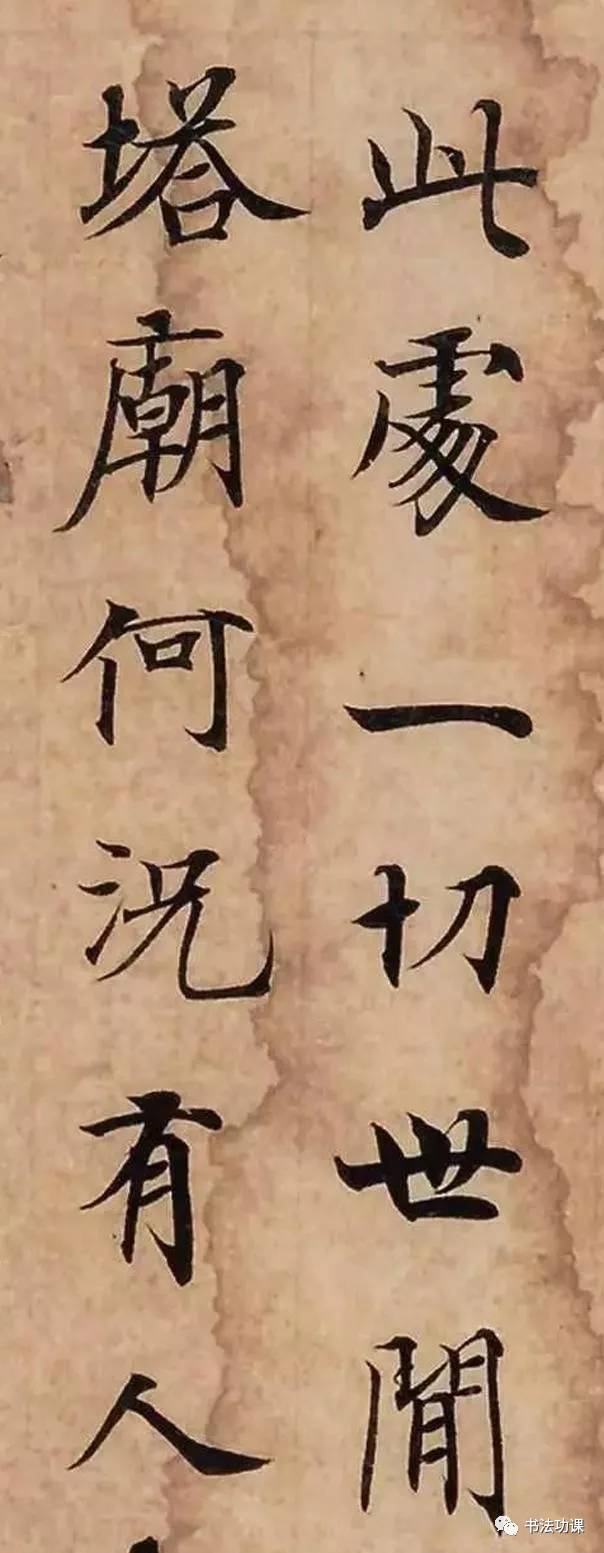 此處一切世間
塔廟何況有人
书法功课